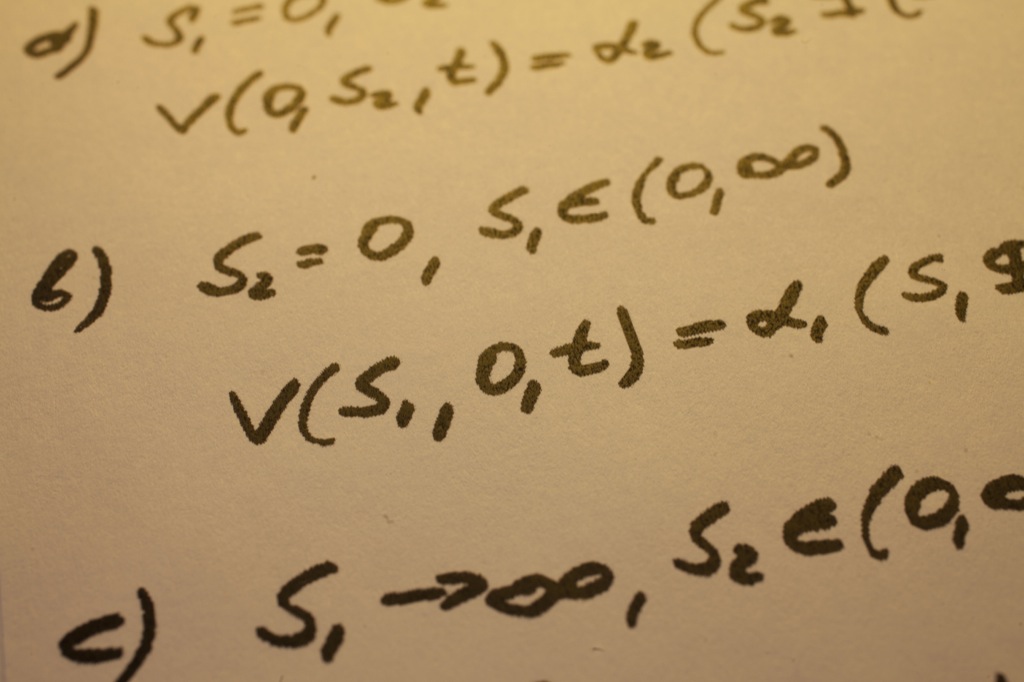 a) S₁ = 0,
V(0, S₂, t) = α₂ (S₂
b) S₂ = 0, S₁ ∈ (0, ∞)
V(S₁, 0, t) = α₁ (S₁
c) S₁ → ∞, S₂ ∈ (0,